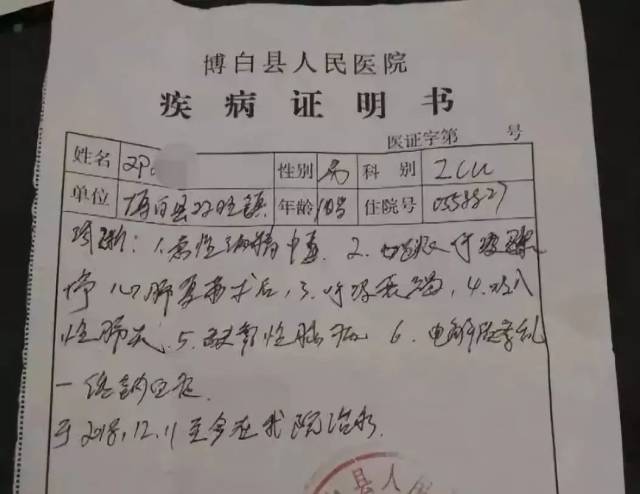 博白县人民医院
疾病证明书
医证字第 号
姓名 邓 性别 男 科别 ICU
单位 博白县双旺镇 年龄 18岁 住院号 0558827
诊断：1.急性酒精中毒 2.呼吸骤
停心肺复苏术后，3.呼吸衰竭，4.吸入
性肺炎 5.缺氧性脑病 6.电解质紊乱
一低钠血症
于2018.12.11至今在我院治疗.
县人